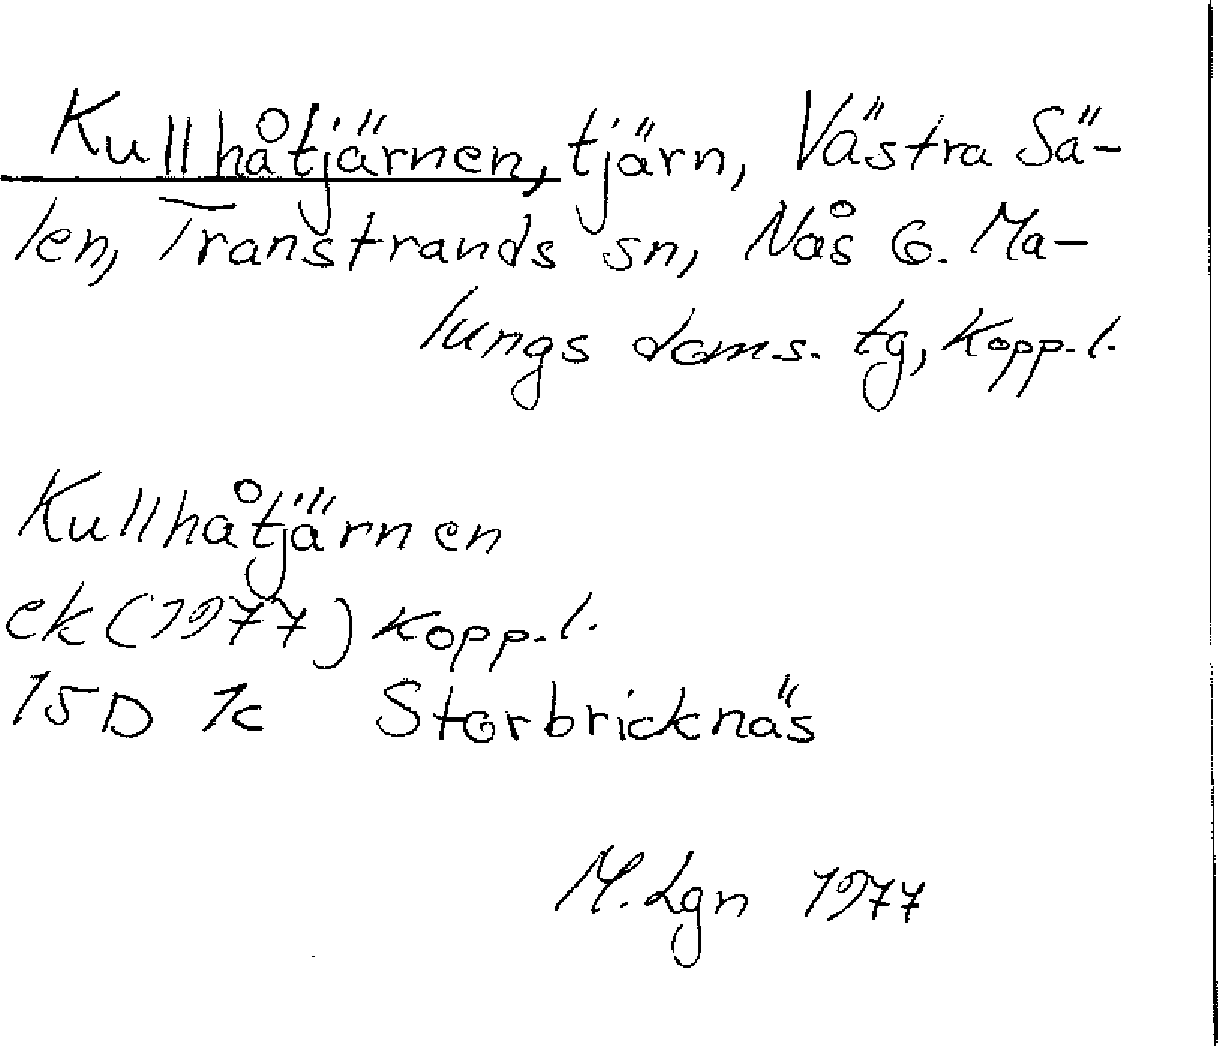 Kullhåtjärnen, tjärn, Västra Sä-
len, Transtrands sn, Nås o. Ma-
lungs doms. tg, Kopp. l.
Kullhåtjärnen
ek (1977) Kopp. l.
15D 1c Storbricknäs
M. Lgn 1977